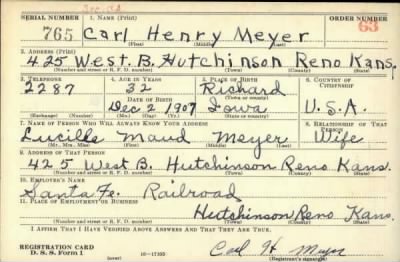 SERIAL NUMBER 1. NAME (Print) ORDER NUMBER
765 Carl Henry Meyer 63
(First) (Middle) (Last)
2. ADDRESS (Print)
425 West. B. Hutchinson Reno Kans.
(Number and street or R. F. D. number) (Town) (County) (State)
3. TELEPHONE 4. AGE IN YEARS 5. PLACE OF BIRTH 6. COUNTRY OF CITIZENSHIP
2287 32 Richard
DATE OF BIRTH (Town or county)
Dec 2 1907 Iowa U.S.A.
(Exchange) (Number) (Mo.) (Day) (Yr.) (State or country)
7. NAME OF PERSON WHO WILL ALWAYS KNOW YOUR ADDRESS 8. RELATIONSHIP OF THAT PERSON
Lucille Maud Meyer Wife
(Mr., Mrs., Miss) (First) (Middle) (Last)
9. ADDRESS OF THAT PERSON
425 West B. Hutchinson Reno Kans.
(Number and street or R. F. D. number) (Town) (County) (State)
10. EMPLOYER'S NAME
Santa Fe. Railroad
11. PLACE OF EMPLOYMENT OR BUSINESS
Hutchinson Reno Kans.
(Number and street or R. F. D. number) (Town) (County) (State)
I AFFIRM THAT I HAVE VERIFIED ABOVE ANSWERS AND THAT THEY ARE TRUE.
REGISTRATION CARD
D. S. S. Form 1 16—17105 Carl H Meyer